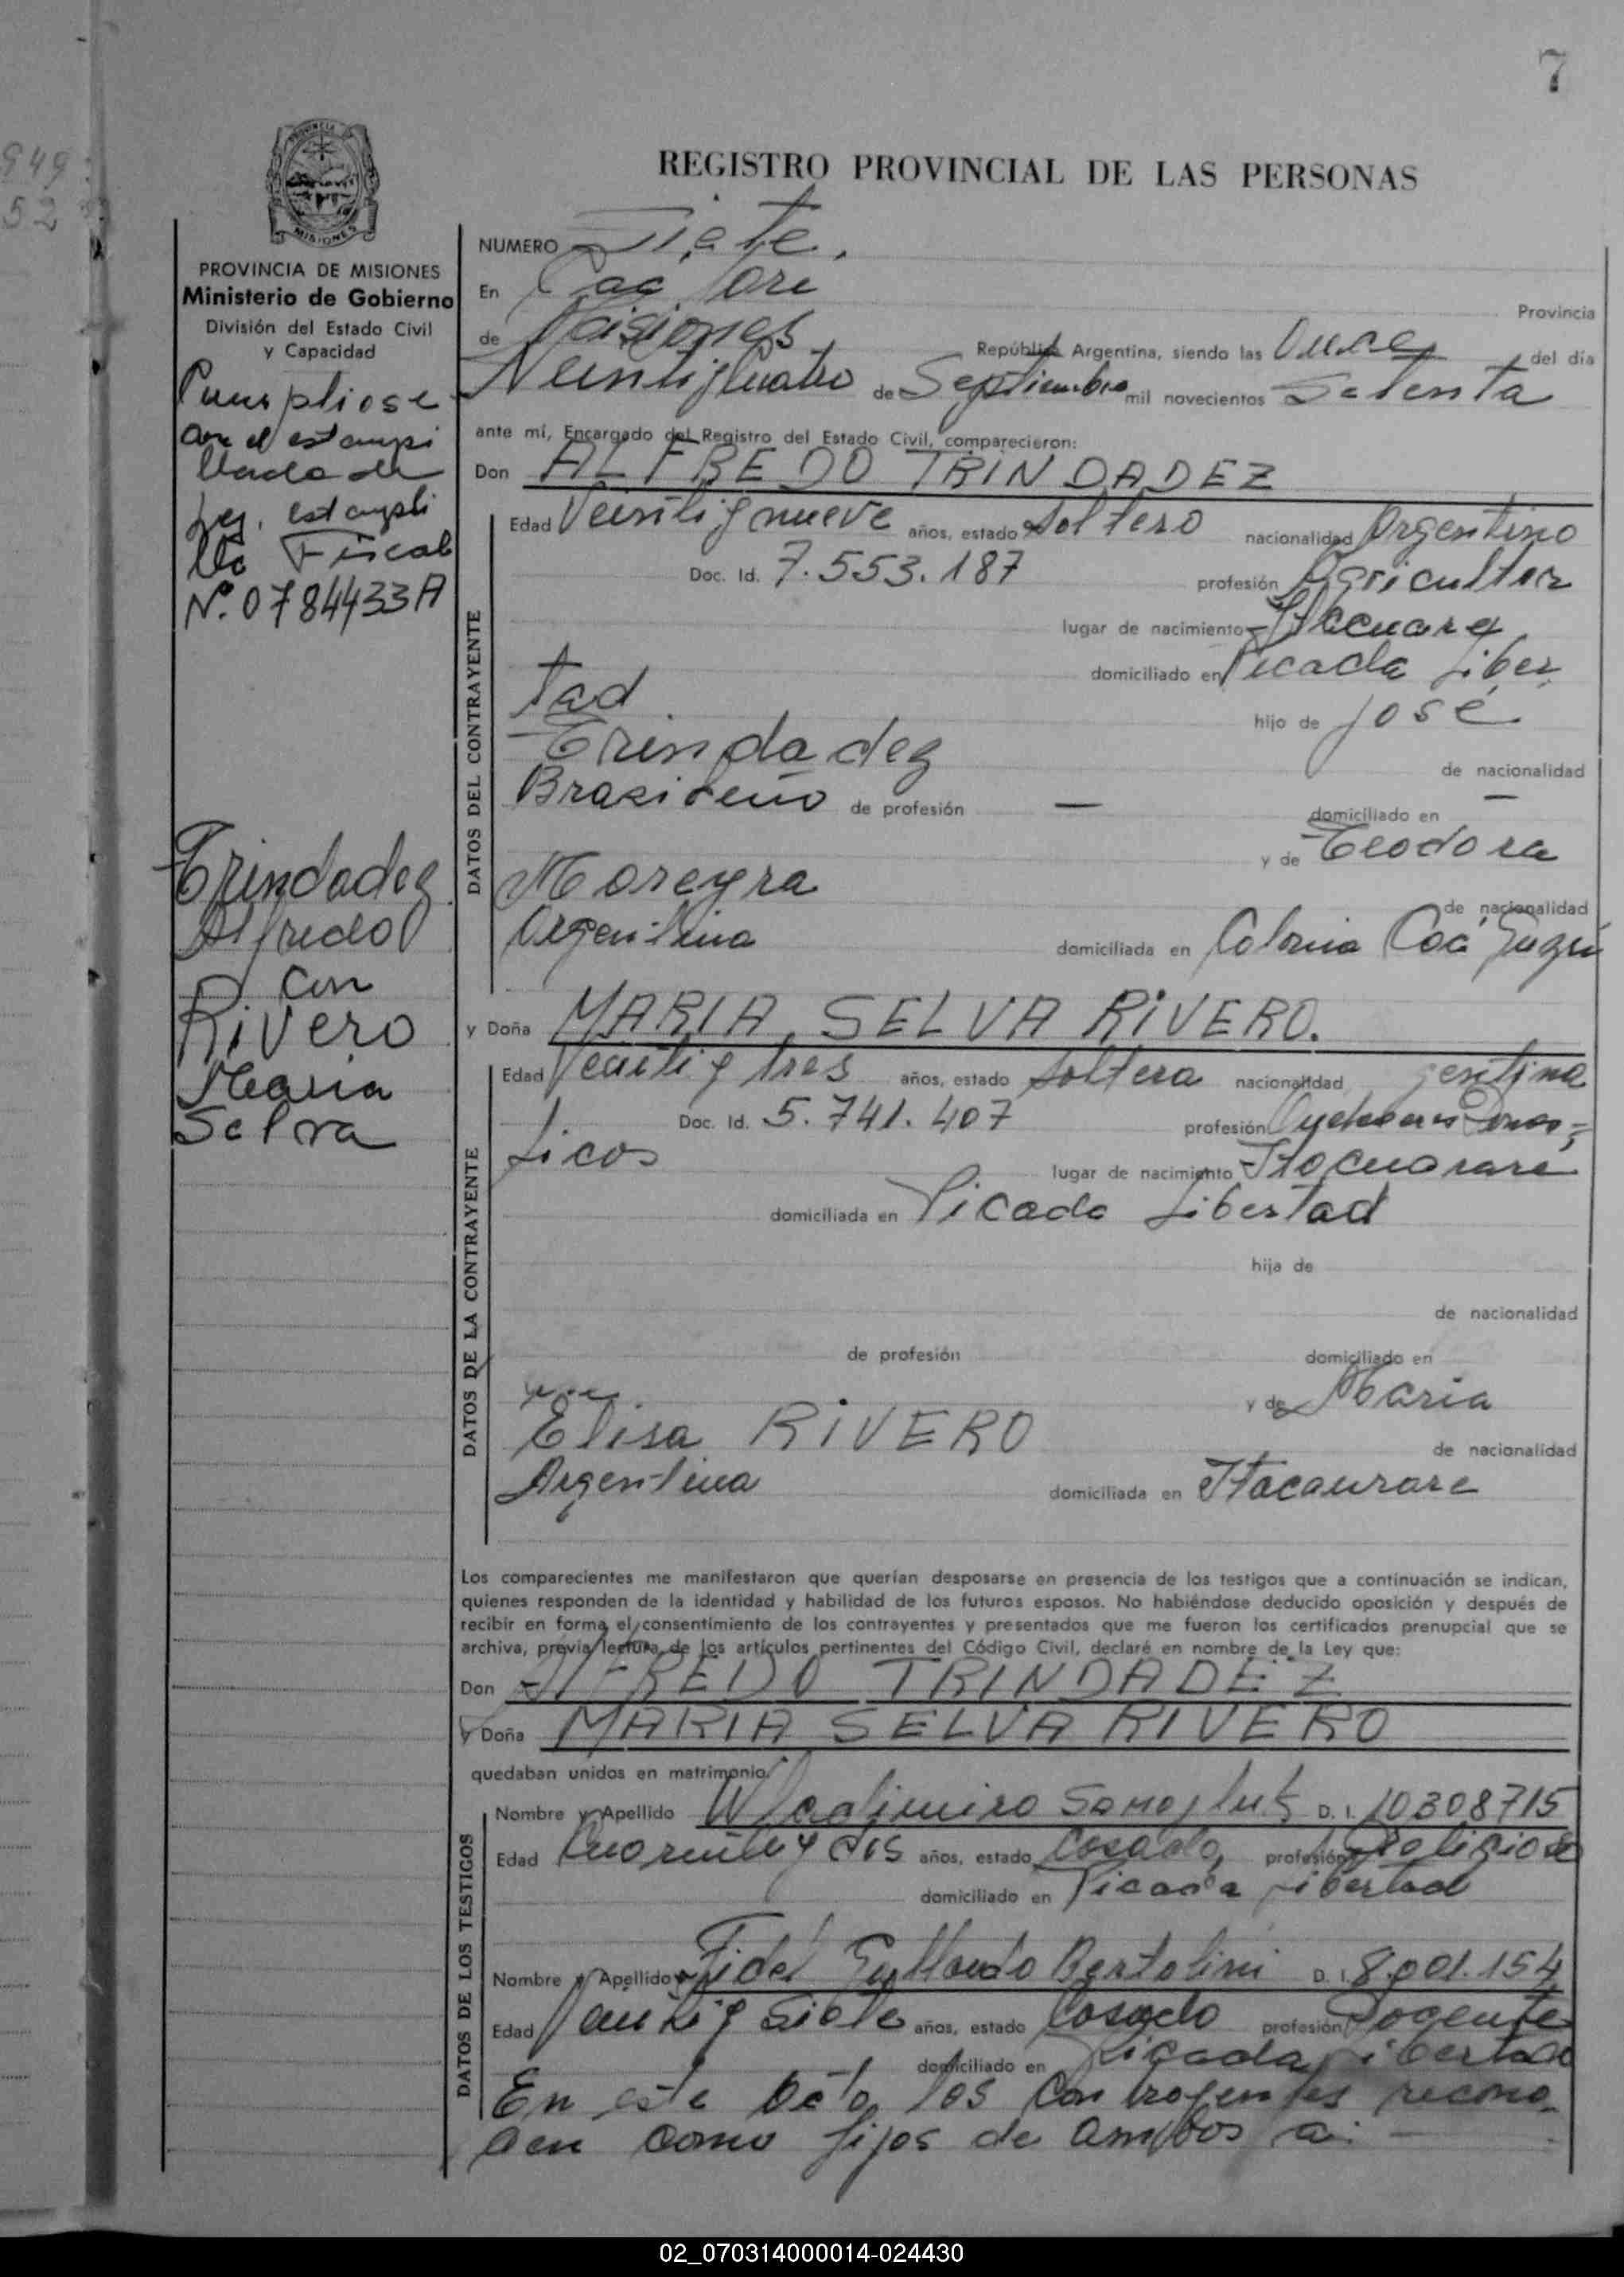 7
949
52
REGISTRO PROVINCIAL DE LAS PERSONAS
PROVINCIA DE MISIONES
Ministerio de Gobierno
División del Estado Civil
y Capacidad
Cumpliose
con el estampi
llado de
ley. estampi
lla Fiscal
Nº. 0784433A
Trindadez
Alfredo
con
Rivero
Maria
Selva
NUMERO Siete.
En Caa Yari
Provincia
de Misiones República Argentina, siendo las Once del día
Veintiquatro de Septiembre mil novecientos Setenta
ante mí, Encargado del Registro del Estado Civil, comparecieron:
Don ALFREDO TRINDADEZ
DATOS DEL CONTRAYENTE
Edad Veintiynueve años, estado Soltero nacionalidad Argentino
Doc. Id. 7.553.187 profesión Agricultor
lugar de nacimiento
domiciliado en Picada Liber
tad hijo de José
Trindadez de nacionalidad
Brasileño de profesión — domiciliado en —
y de Teodora
Moreyra de nacionalidad
Argentina domiciliada en Colonia Caa Guazú
y Doña MARIA SELVA RIVERO.
DATOS DE LA CONTRAYENTE
Edad Veinti y tres años, estado Soltera nacionalidad gentina
Doc. Id. 5.741.407 profesión
ticos lugar de nacimiento Itacuararé
domiciliada en Picada Libertad
hija de
de nacionalidad
de profesión domiciliado en
y de Maria
Elisa RIVERO de nacionalidad
Argentina domiciliada en Itacaurare
Los comparecientes me manifestaron que querían desposarse en presencia de los testigos que a continuación se indican,
quienes responden de la identidad y habilidad de los futuros esposos. No habiéndose deducido oposición y después de
recibir en forma el consentimiento de los contrayentes y presentados que me fueron los certificados prenupcial que se
archiva, previa lectura de los artículos pertinentes del Código Civil, declaré en nombre de la Ley que:
Don ALFREDO TRINDADEZ
y Doña MARIA SELVA RIVERO
quedaban unidos en matrimonio.
DATOS DE LOS TESTIGOS
Nombre y Apellido Wladimiro Samojluk D. I. 10308715
Edad Cuarenta y dos años, estado Casado, profesión Religioso
domiciliado en Picada Libertad
Nombre y Apellido Fidel Bertolini D. I. 8.001.154
Edad Veinti y Siete años, estado Casado profesión Docente
domiciliado en Picada Libertad
En este acto los Contrayentes recono-
cen como hijos de ambos a: —
02_070314000014-024430